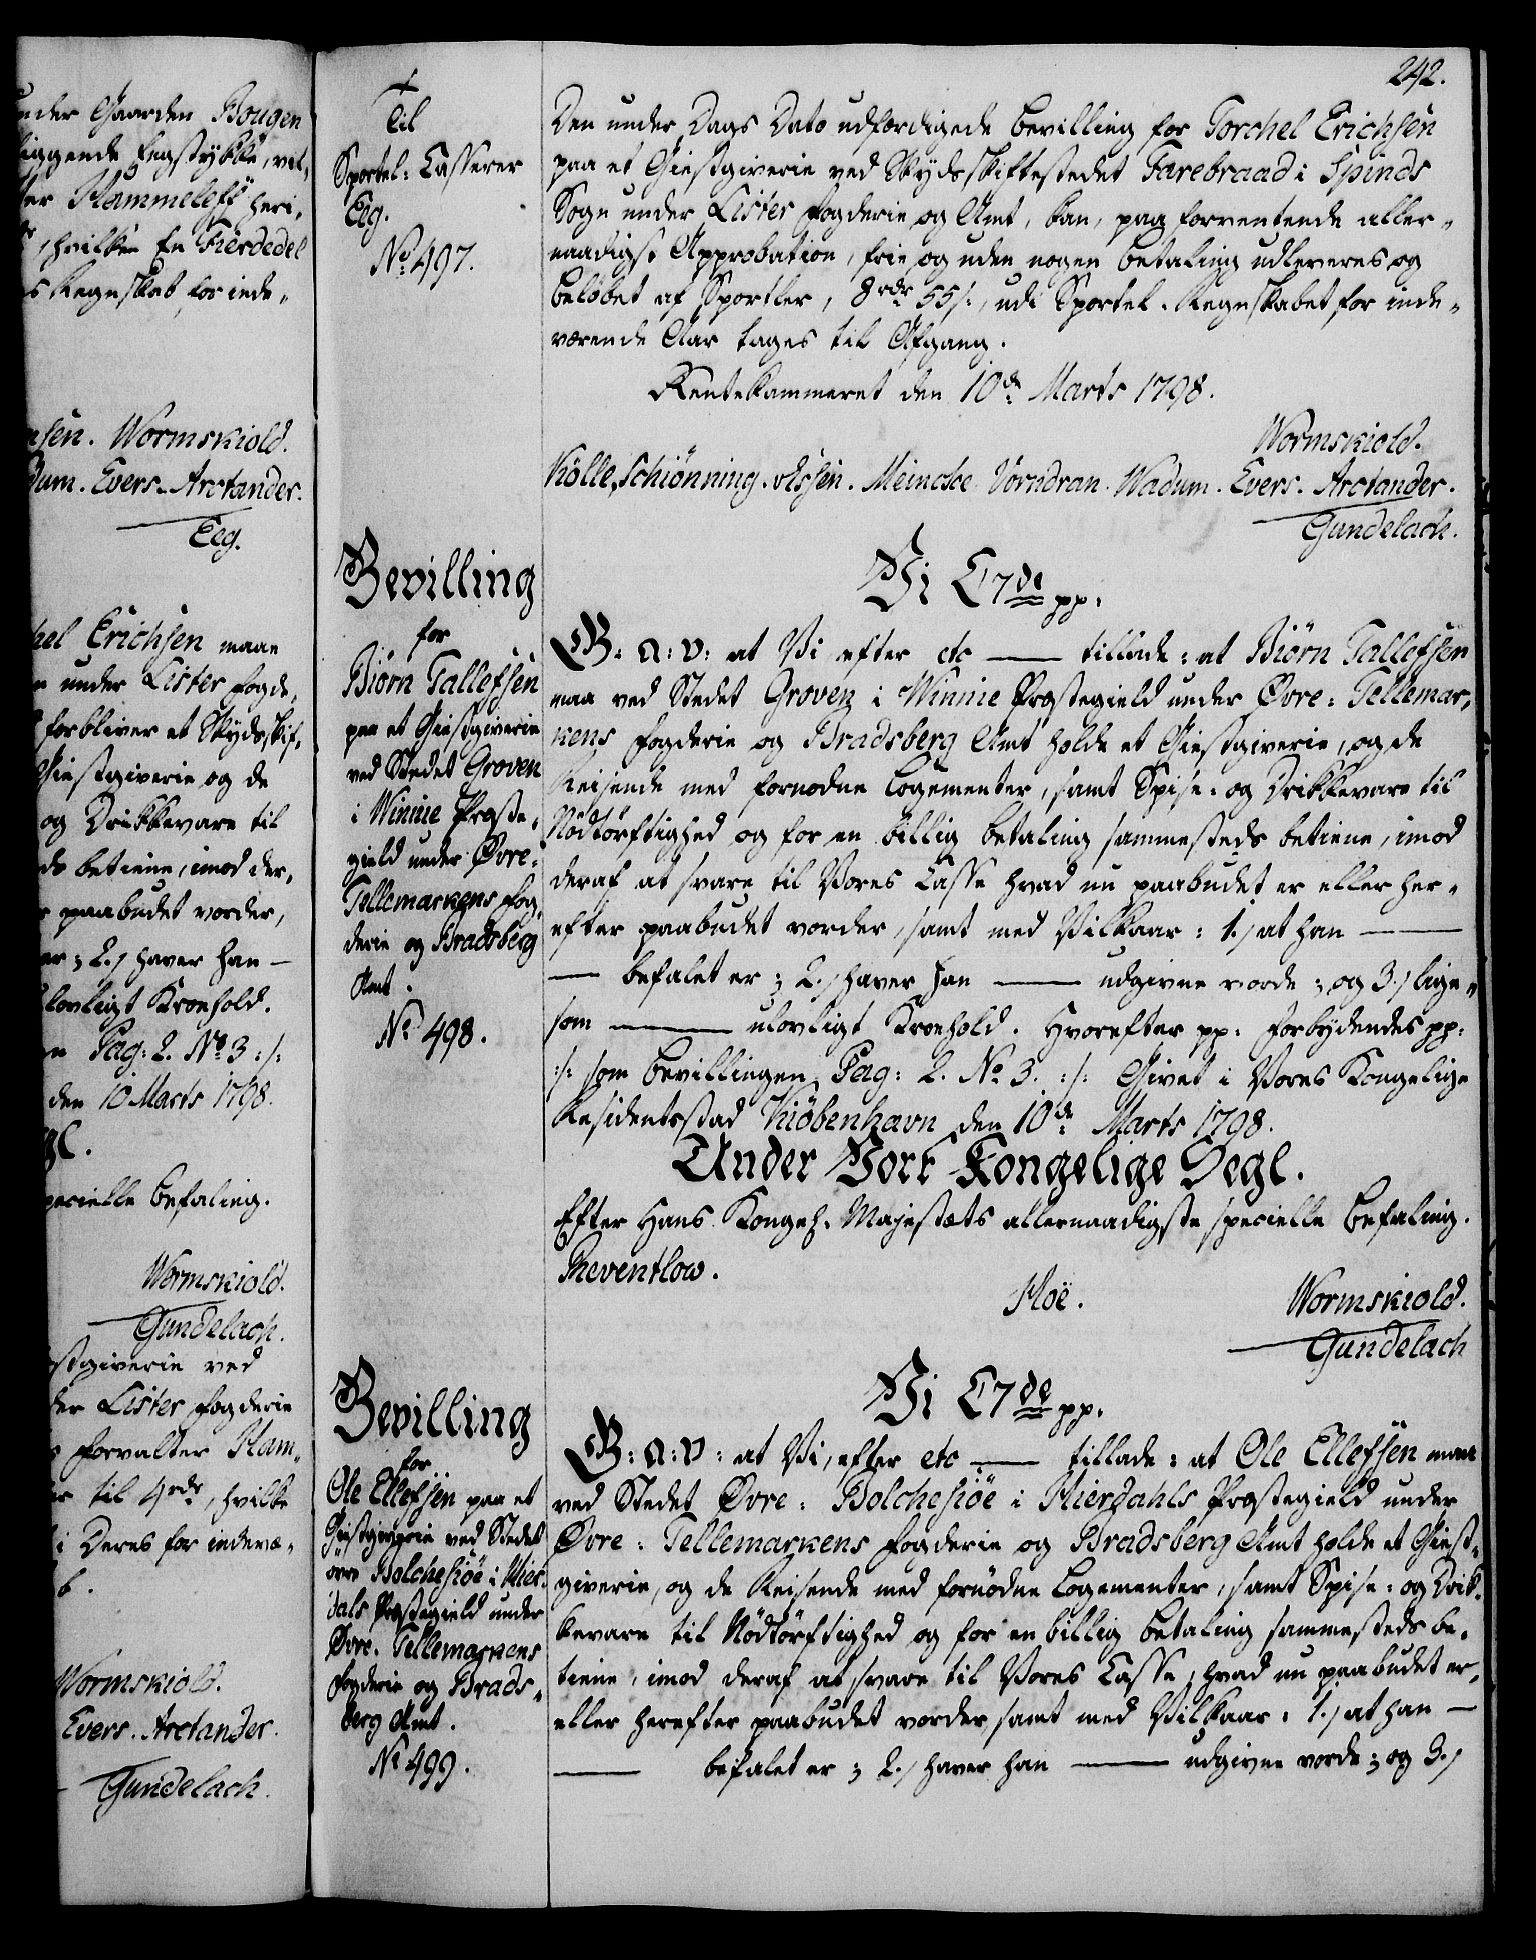 under Gaarden Bougen
liggende Engstykke, vel„
ter Hammeleff heri„
hvilken En Fierdedel
s Regnskab for inde„
nsen. Wormskiold.
dum. Evers. Arctander.
Eeg.
hel Erichsen maae
under Lister Fogde„
forbliver et Skydsskif„
Giestgiverie og de
og Drikkevare til
ds betiene, imod der„
paabudet vorder,
er; 2./ haver han —
lovligt Kroehold.
Pag: 2. No 3 :/:
den 10 Marts 1798.
gl.
pecielle Befaling.
Wormskiold.
Gundelach.
stgiverie ved
der Lister Fogderie
s Forvalter Ham„
til 4 rdr, hvilke
i Deres for indevæ„
6.
Wormskiold.
Evers. Arctander.
Gundelach.
242.
+
Til
Sportel: Casserer
Eeg.
No 497.
Den under Dags Dato udfærdigede Bevilling for Torchel Erichsen
paa et Giestgiverie ved Skydsskiftestedet Farebraad i Spinds
Sogn under Lister Fogderie og Amt, kan, paa forventende aller„
naadigst Approbation, frie og uden nogen Betaling udleveres og
Beløbet af Sportler, 8 rdr 55 s:, udi Sportel-Regnskabet for inde„
værende Aar tages til Afgang.
Rentekammeret den 10de Marts 1798.
Wormskiold.
Kölle, Schiönning. Essen. Meincke Vorndran. Wadum. Evers. Arctander.
Gundelach.
Bevilling
for
Biörn Tallefsen
paa et Giestgiverie
ved Stedet Groven
i Winnie Præste„
gield under Øvre:
Tellemarkens Fog„
derie og Bradsberg
Amt.
No 498.
Vi C7de pp.
G: A: V: at Vi efter etc — tillade: at Biörn Tallefsen
maa ved Stedet Groven i Winnie Præstegield under Øvre: Tellemar„
kens Fogderie og Bradsberg Amt holde et Giestgiverie, og de
Reisende med fornødne Logementer, samt Spise: og Drikkevare til
Nödtörftighed og for en billig Betaling sammesteds betiene, imod
deraf at svare til Vores Casse hvad nu paabudet er eller her„
efter paabudet vorder, samt med Vilkaar: 1./ at han —
— befalet er; 2./ haver han — udgivne vorde; og 3./ lige„
som — ulovligt Kroehold. Hvorefter pp. Forbydendes pp.
:/: som Bevillingen Pag: 2. No 3. :/: Givet i Vores Kongelige
Residentsstad Kiöbenhavn den 10de Marts 1798.
Under Vort Kongelige Segl.
Efter Hans Kongel. Majestæts allernaadigste specielle Befaling.
Reventlow.
Hoë.
Wormskiold.
Gundelach
Bevilling
for
Ole Ellefsen paa et
Giestgiverie ved Stedet
övre Bolchesiöe i Hier„
dals Præstegield under
Øvre. Tellemarkens
Fogderie og Brads„
berg Amt.
No 499.
Vi C7de pp.
G: A: V: at Vi, efter etc — tillade: at Ole Ellefsen maae
ved Stedet Øvre: Bolchesiöe i Hierdahls Præstegield under
Øvre: Tellemarkens Fogderie og Bradsberg Amt holde et Giest„
giverie, og de Reisende med fornödne Logementer, samt Spise: og Drik„
kevare til Nödtörftighed og for en billig Betaling sammesteds be„
tiene, imod deraf at svare til Vores Casse, hvad nu paabudet er,
eller herefter paabudet vorder, samt med Vilkaar: 1./ at han —
— befalet er; 2./ haver han — udgivne vorde; og 3./